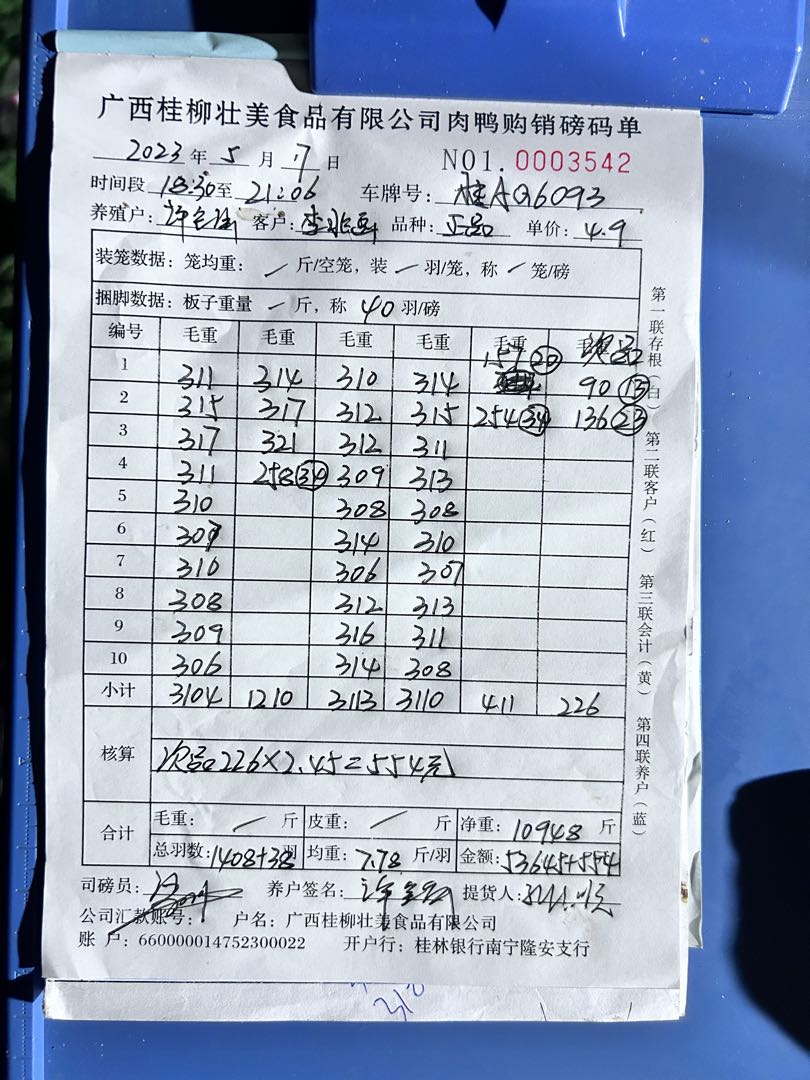 广西桂柳壮美食品有限公司肉鸭购销磅码单
2023年5月17日 NO1.0003542
时间段18:30至21:06 车牌号:桂AQ6093
养殖户: 客户: 品种:正品 单价:4.9
装笼数据:笼均重:/斤/空笼,装/羽/笼,称/笼/磅
捆脚数据:板子重量/斤,称40羽/磅
编号 毛重 毛重 毛重 毛重 毛重 次品
1 311 314 310 314 157(20) 90(13)
2 315 317 312 315 254(34) 136(23)
3 317 321 312 311
4 311 258(34) 309 313
5 310 308 308
6 307 314 310
7 310 306 307
8 308 312 313
9 309 316 311
10 306 314 308
小计 3104 1210 3113 3110 411 226
核算 次品226×2.45=554元
合计 毛重:/斤 皮重:/斤 净重:10948斤
总羽数:1408+38羽 均重:7.78斤/羽 金额:53645+554
司磅员: 养户签名: 提货人:
公司汇款账号: 户名:广西桂柳壮美食品有限公司
账 户:660000014752300022 开户行:桂林银行南宁隆安支行
第一联存根(白)
第二联客户(红)
第三联会计(黄)
第四联养户(蓝)